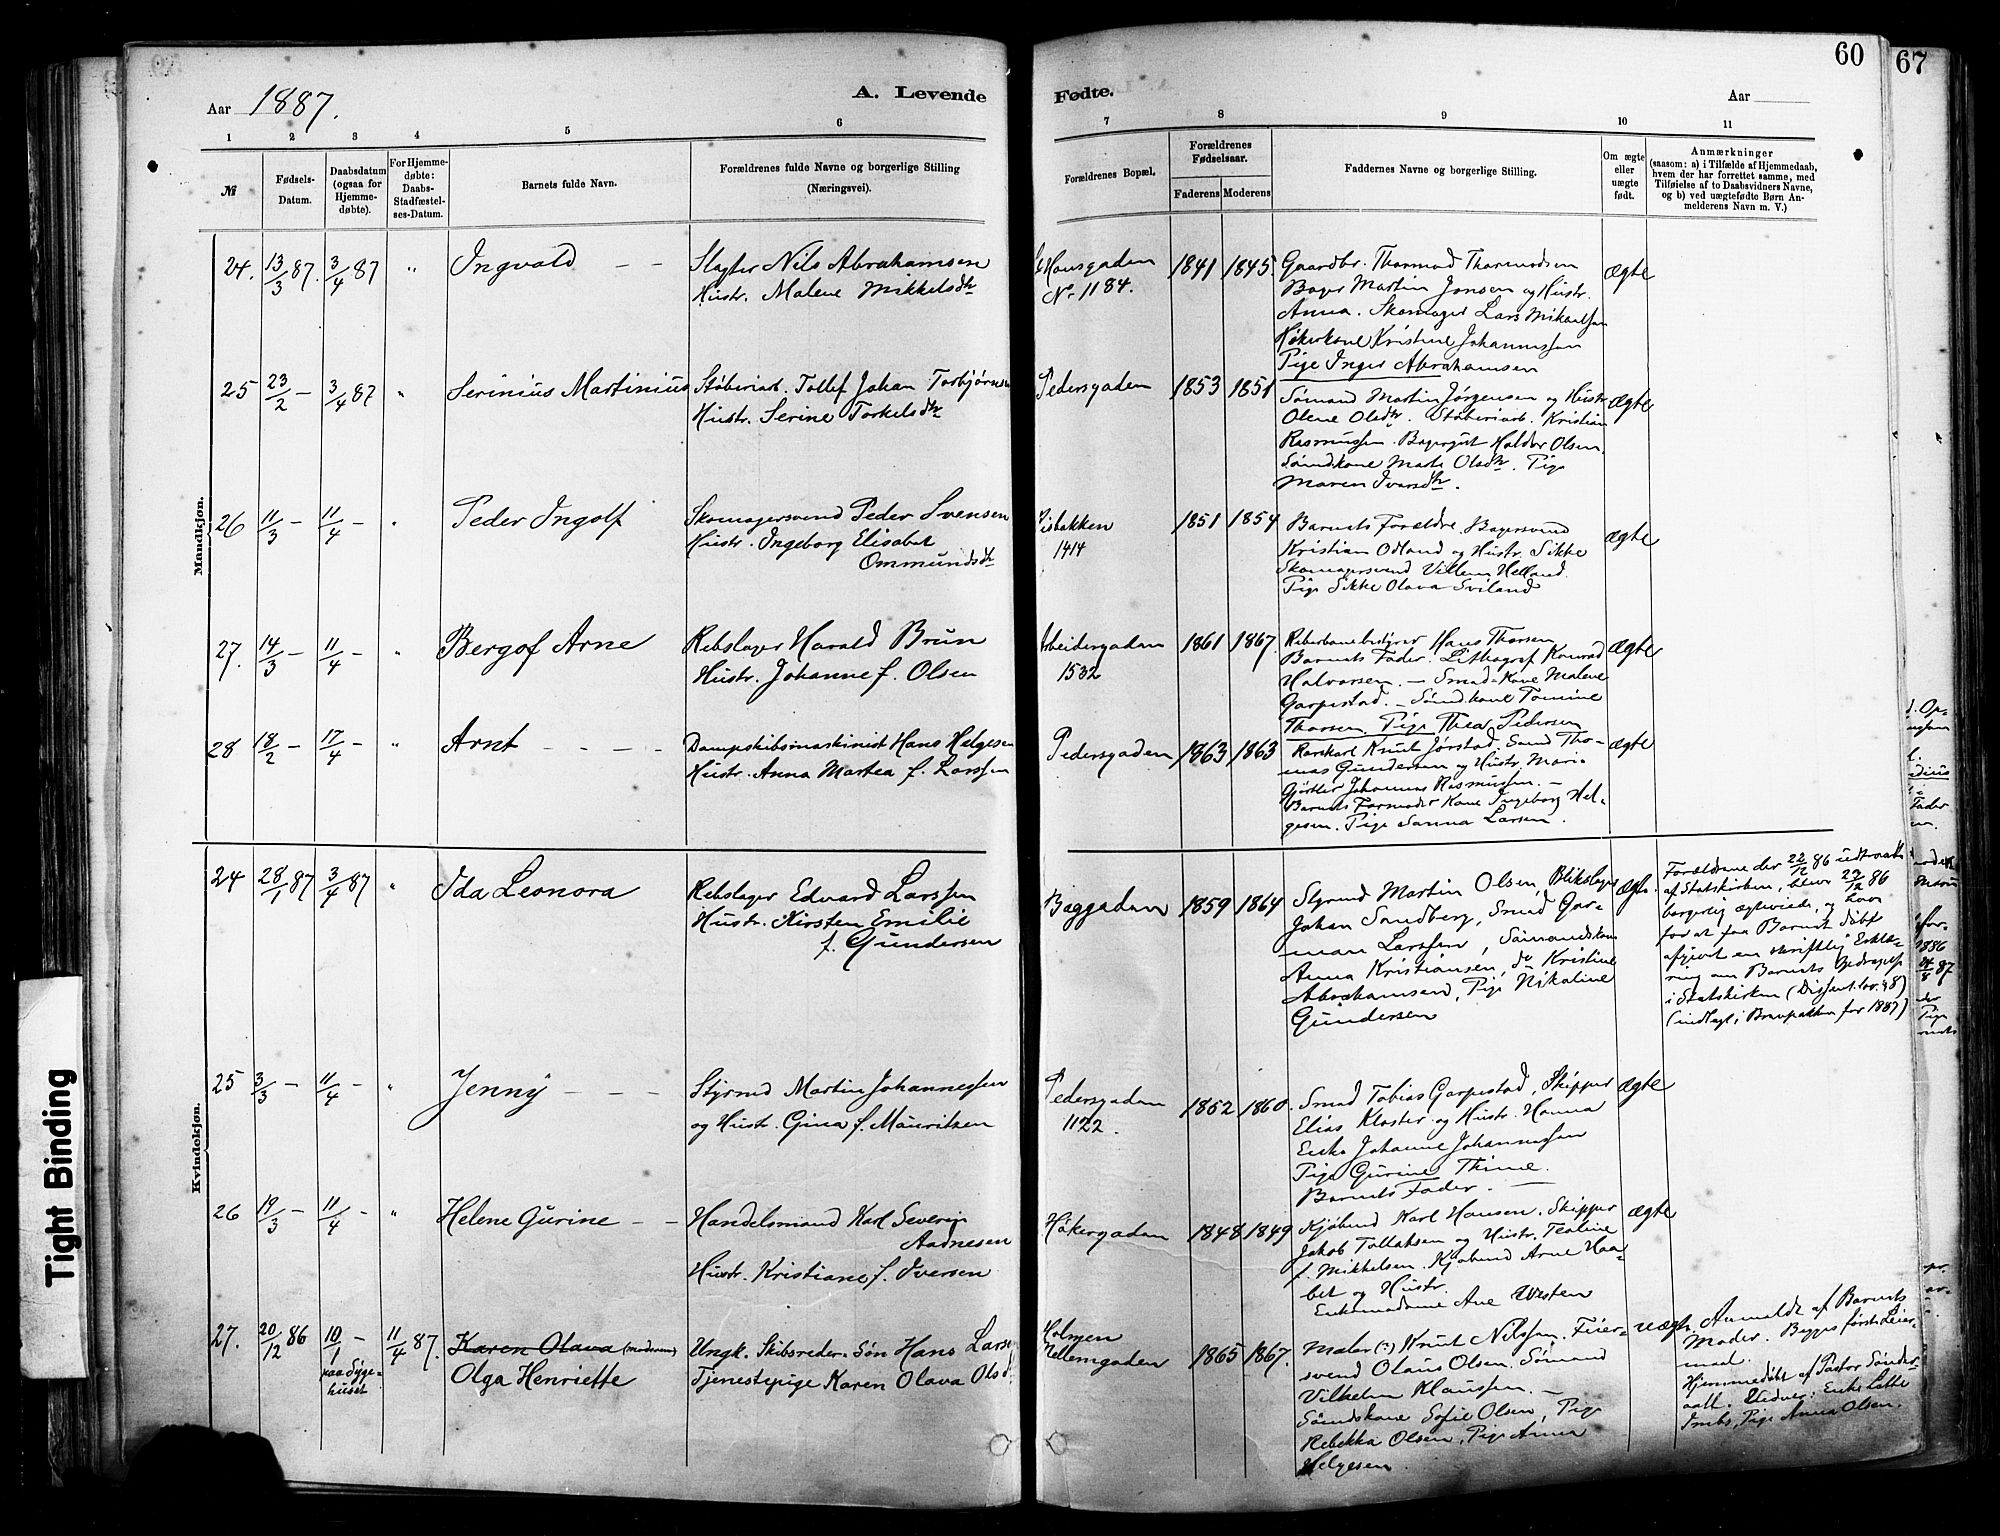 60
67
Aar 1887.
A. Levende
Fødte.
Aar
1 2 3 4 5 6 7 8 9 10 11
№
Fødsels-
Datum.
Daabsdatum
(ogsaa for
Hjemme-
døbte).
For Hjemme-
døbte:
Daabs-
Stadfæstel-
ses-Datum.
Barnets fulde Navn.
Forældrenes fulde Navne og borgerlige Stilling
(Næringsvei).
Forældrenes Bopæl.
Forældrenes
Fødselsaar.
Faderens Moderens
Faddernes Navne og borgerlige Stilling.
Om ægte
eller
uægte
født.
Anmærkninger
(saasom: a) i Tilfælde af Hjemmedaab,
hvem der har forrettet samme, med
Tilføielse af to Daabsvidners Navne,
og b) ved uægtefødte Børn An-
melderens Navn m. V.)
Mandkjøn.
24. 13/3 87. 3/4 87 " Ingvald
Slagter Nils Abrahamsen
Hustr. Malene Mikkelsdtr
Hansgaden
No 1184.
1841 1845.
Gaardbr. Thormod Thormodsen
Bager Martin Jonsen og Hustr.
Anna. Skomager Lars Mikaelsen
Høkerkone Kristine Johannessen
Pige Inger Abrahamsen
Ægte
25 23/2 - 3/4 87 " Serinius Martinius
Støberiarb. Tollef Johan Torbjørnsen
Hustr. Serine Torkelsdtr
Pedersgaden
1853 1851
Sømand Martin Jørgensen og Hustr
Olene Olsdtr. Støberiarb. Kristian
Rasmussen. Bagergut Haldor Olsen.
Sømdkone Marte Olsdtr. Pige
Maren Ivarsdtr.
Ægte
26 11/3 - 11/4 - " Peder Ingolf
Skomagersvend Peder Svensen
Hustr. Ingeborg Elisabet
Ommundsdtr
1414
1851 1854
Barnets Forældre, Bagersvend
Kristian Odland og Hustr. Sikke
Skomagersvend Villem Helland.
Pige Sikke Olava Sviland
Ægte
27. 14/3 - 11/4 - " Bergof Arne
Rebslager Harald Brun
Hustr. Johanne f. Olsen
Arbeidergaden
1532
1861 1867.
Reberbanebestyrer Hans Thorsen
Barnets Fader. Lithograf Konrad
Halvorsen. — Smed-Kone Malene
Garpestad. — Sømdkone Tomine
Thorsen. Pige Thea Pedersen
Ægte
28 18/2 - 17/4 - " Arnt
Dampskibsmaskinist Hans Helgesen
Hustr. Anna Martea f. Larssen
Pedersgaden
1863 1863
Knut Jørstad. Smed Tho-
mas Gundersen og Hustr. Mari-
Gjørtler Johannes Rasmussen. —
Barnets Farmoder Kone Ingeborg Hel-
gesen. Pige Sanna Larsen.
Ægte
Kvindekjøn.
24 28/1 87 3/4 87 " Ida Leonora
Rebslager Edvard Larssen
Hustr. Kirsten Emilie
f. Gundersen
Baggaden
1859 1864
Styrmd Martin Olsen, Blikslager
Johan Sandberg, Smed Gar-
man Larssen, Sømandskone
Anna Kristiansen, do Kristine
Abrahamsen, Pige Nikoline
Gundersen
Ægte.
Forældrene der 22/12 86 udtraadte
af Statskirken, bleve 29/12 86
borgerlig ægteviede, og have
for at faa Barnet døbt
afgivet en skriftlig Erklæ-
ring om Barnets Opdragelse
i Statskirken (Dissent. lov. § 8)
(indlagt i Brevpakken for 1887)
25 3/3 - 11/4 - " Jenny
Styrmd Martin Johannessen
og Hustr. Gina f. Mauritzen
Pedersgaden
1122.
1852 1860.
Smed Tobias Garpestad, Skipper
Elias Kloster og Hustr. Hanna
Enke Johanne Johannessen
Pige Gurine Thime.
Barnets Fader. —
Ægte
26 19/3 - 11/4 - " Helene Gurine
Handelsmand Karl Severin
Aadnesen
Hustr. Kristiane f. Iversen
Høkergaden
1848 1849
Kjøbmd Karl Hansen. Skipper
Jakob Tollaksen og Hustr. Tealine
f. Mikkelsen. Kjøbmd Arne Haa-
bet og Hustr.
Enkemadame Ane Wersten
Ægte
27. 20/12 86 10/1 - 11/4 87. Karen Olava (moderen)
paa Syge-
huset
Olga Henriette
Ungk. Skibsreder-Søn Hans Larsen
Tjenestepige Karen Olava Olsd.
Holmen
Mellemgaden
1865 1867.
Maler (?) Knut Nilssen. Feier-
svend Olaus Olsen. Sømand
Vilhelm Klaussen. —
Sømdskone Sofie Olsen, Pige
Rebekka Olsen, Pige Anna
Helgesen.
uægte.
Anmeldt af Barnets
Moder. Begges første Leier-
maal.
Hjemmedøbt af Pastor Sønder-
aall. Vidner: Enke Lotte
Imbs, Pige Anna Olsen.
Tight Binding